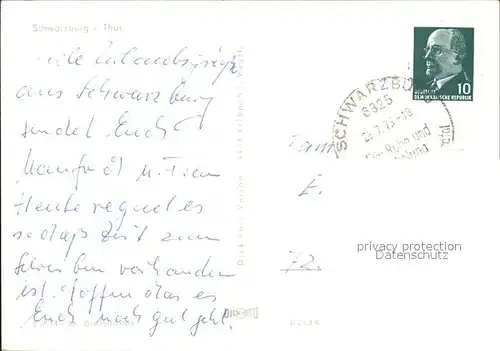 Schwarzburg i. Thür.
viele Urlaubsgrüße
aus Schwarzburg
sendet Euch
Manfred u. Frau
Heute regnet es
so daß Zeit zum
Schreiben vorhanden
ist. Hoffen das es
Euch noch gut geht.
SCHWARZBURG
6825
-18
Ruhe und
DEUTSCHE
DEMOKRATISCHE REPUBLIK
10
Fam
72.
privacy protection
Datenschutz